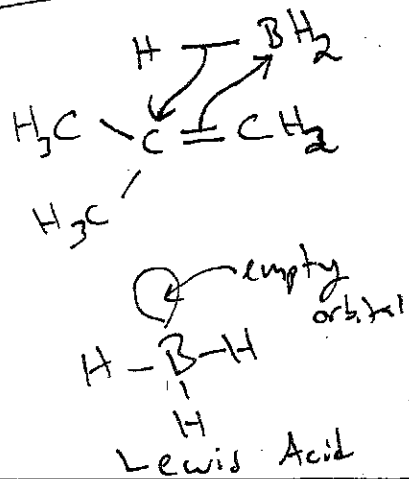 H — BH2
H3C \ C = CH2
H3C /
empty
orbital
H - B - H
H
Lewis Acid